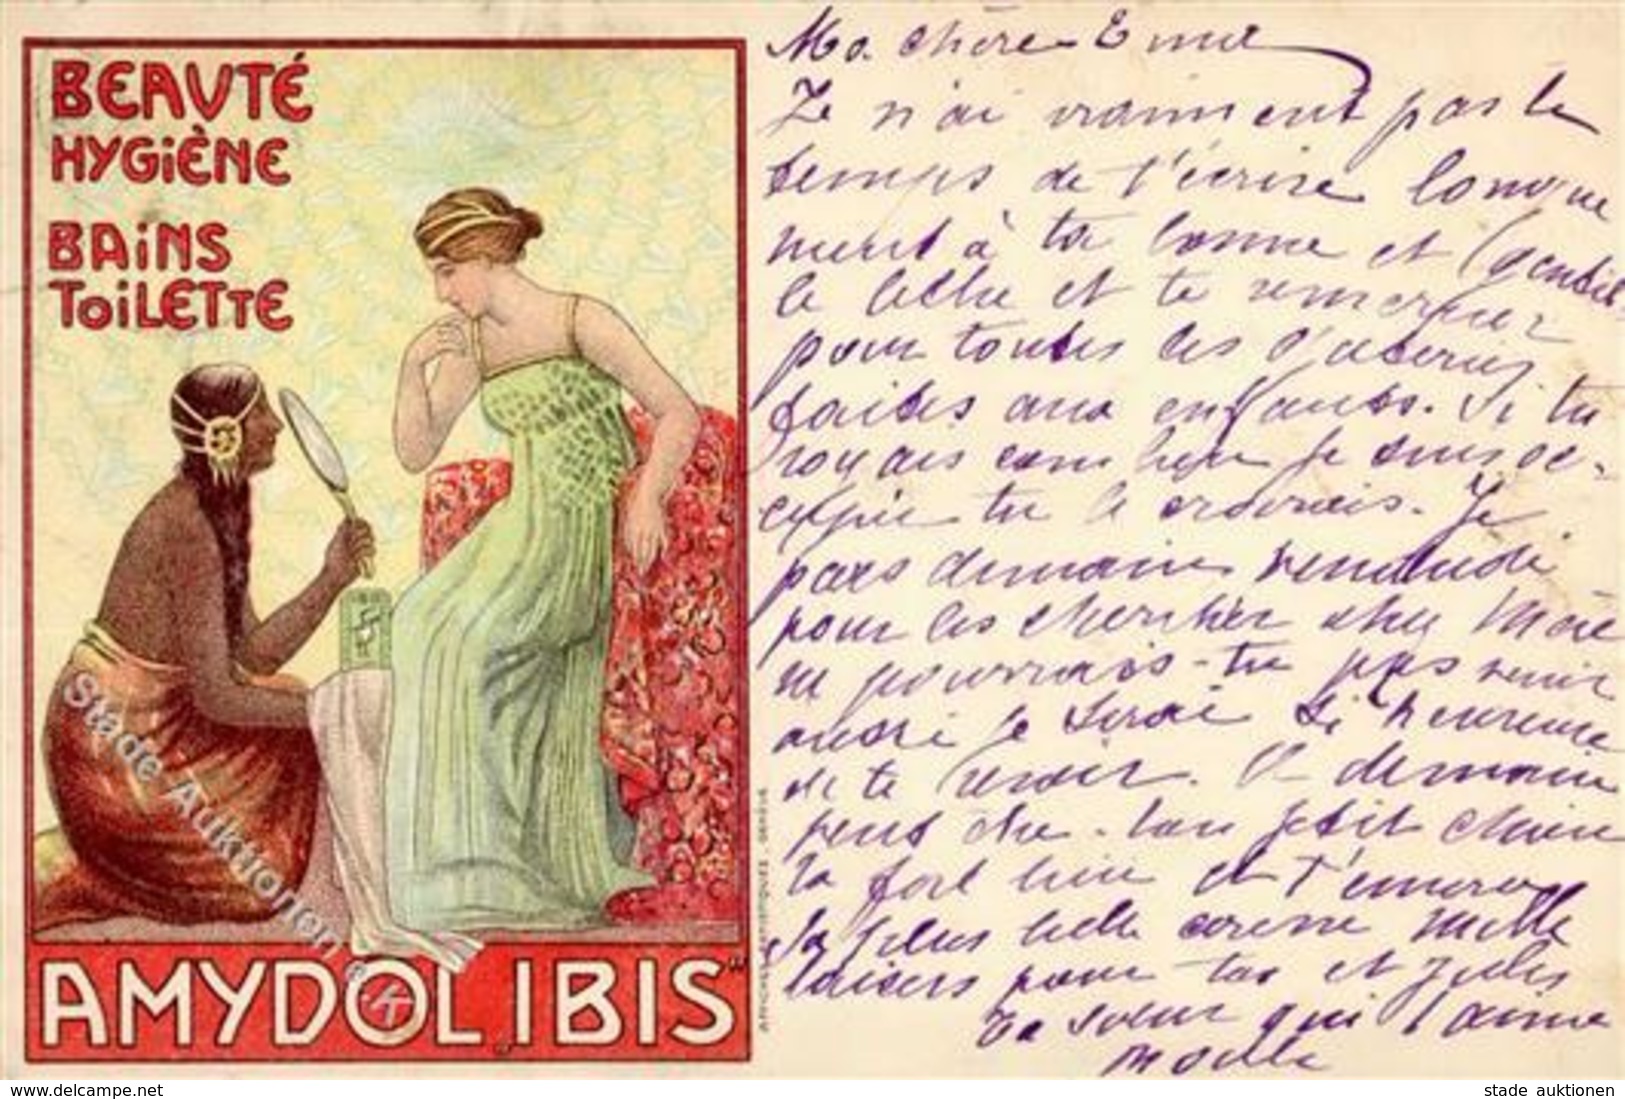 BEAUTÉ
HYGIÈNE
BAINS
TOILETTE
AMYDOL „IBIS"
Ma chère
Je n'ai vraiment pas le
temps de t'écrire longue
ment à ta bonne et gentil
le lettre et te remercier
pour toutes les
faites aux enfants. Si tu
voyais combien je suis oc-
cupée tu le croirais. Je
pars demain vendredi
pour les chercher chez Mère
ne pourrais-tu pas venir
aussi je serai si heureuse
de te revoir. A demain
peut être. Ton petit chien
va fort bien et t'envoie
sa plus belle caresse Mille
baisers pour toi et Jules
Ta soeur qui t'aime
AFFICHES ARTISTIQUES GENÈVE
Stade Auktionen
www.delcampe.net
stade auktionen